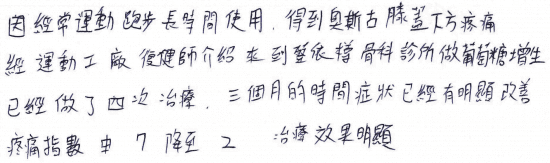 因經常運動跑步長時間使用,得到奧斯古膝蓋下方疼痛
經運動工廠復健師介紹來到蔡依橙骨科診所做葡萄糖增生
已經做了四次治療,三個月的時間症狀已經有明顯改善
疼痛指數由7降至2 治療效果明顯